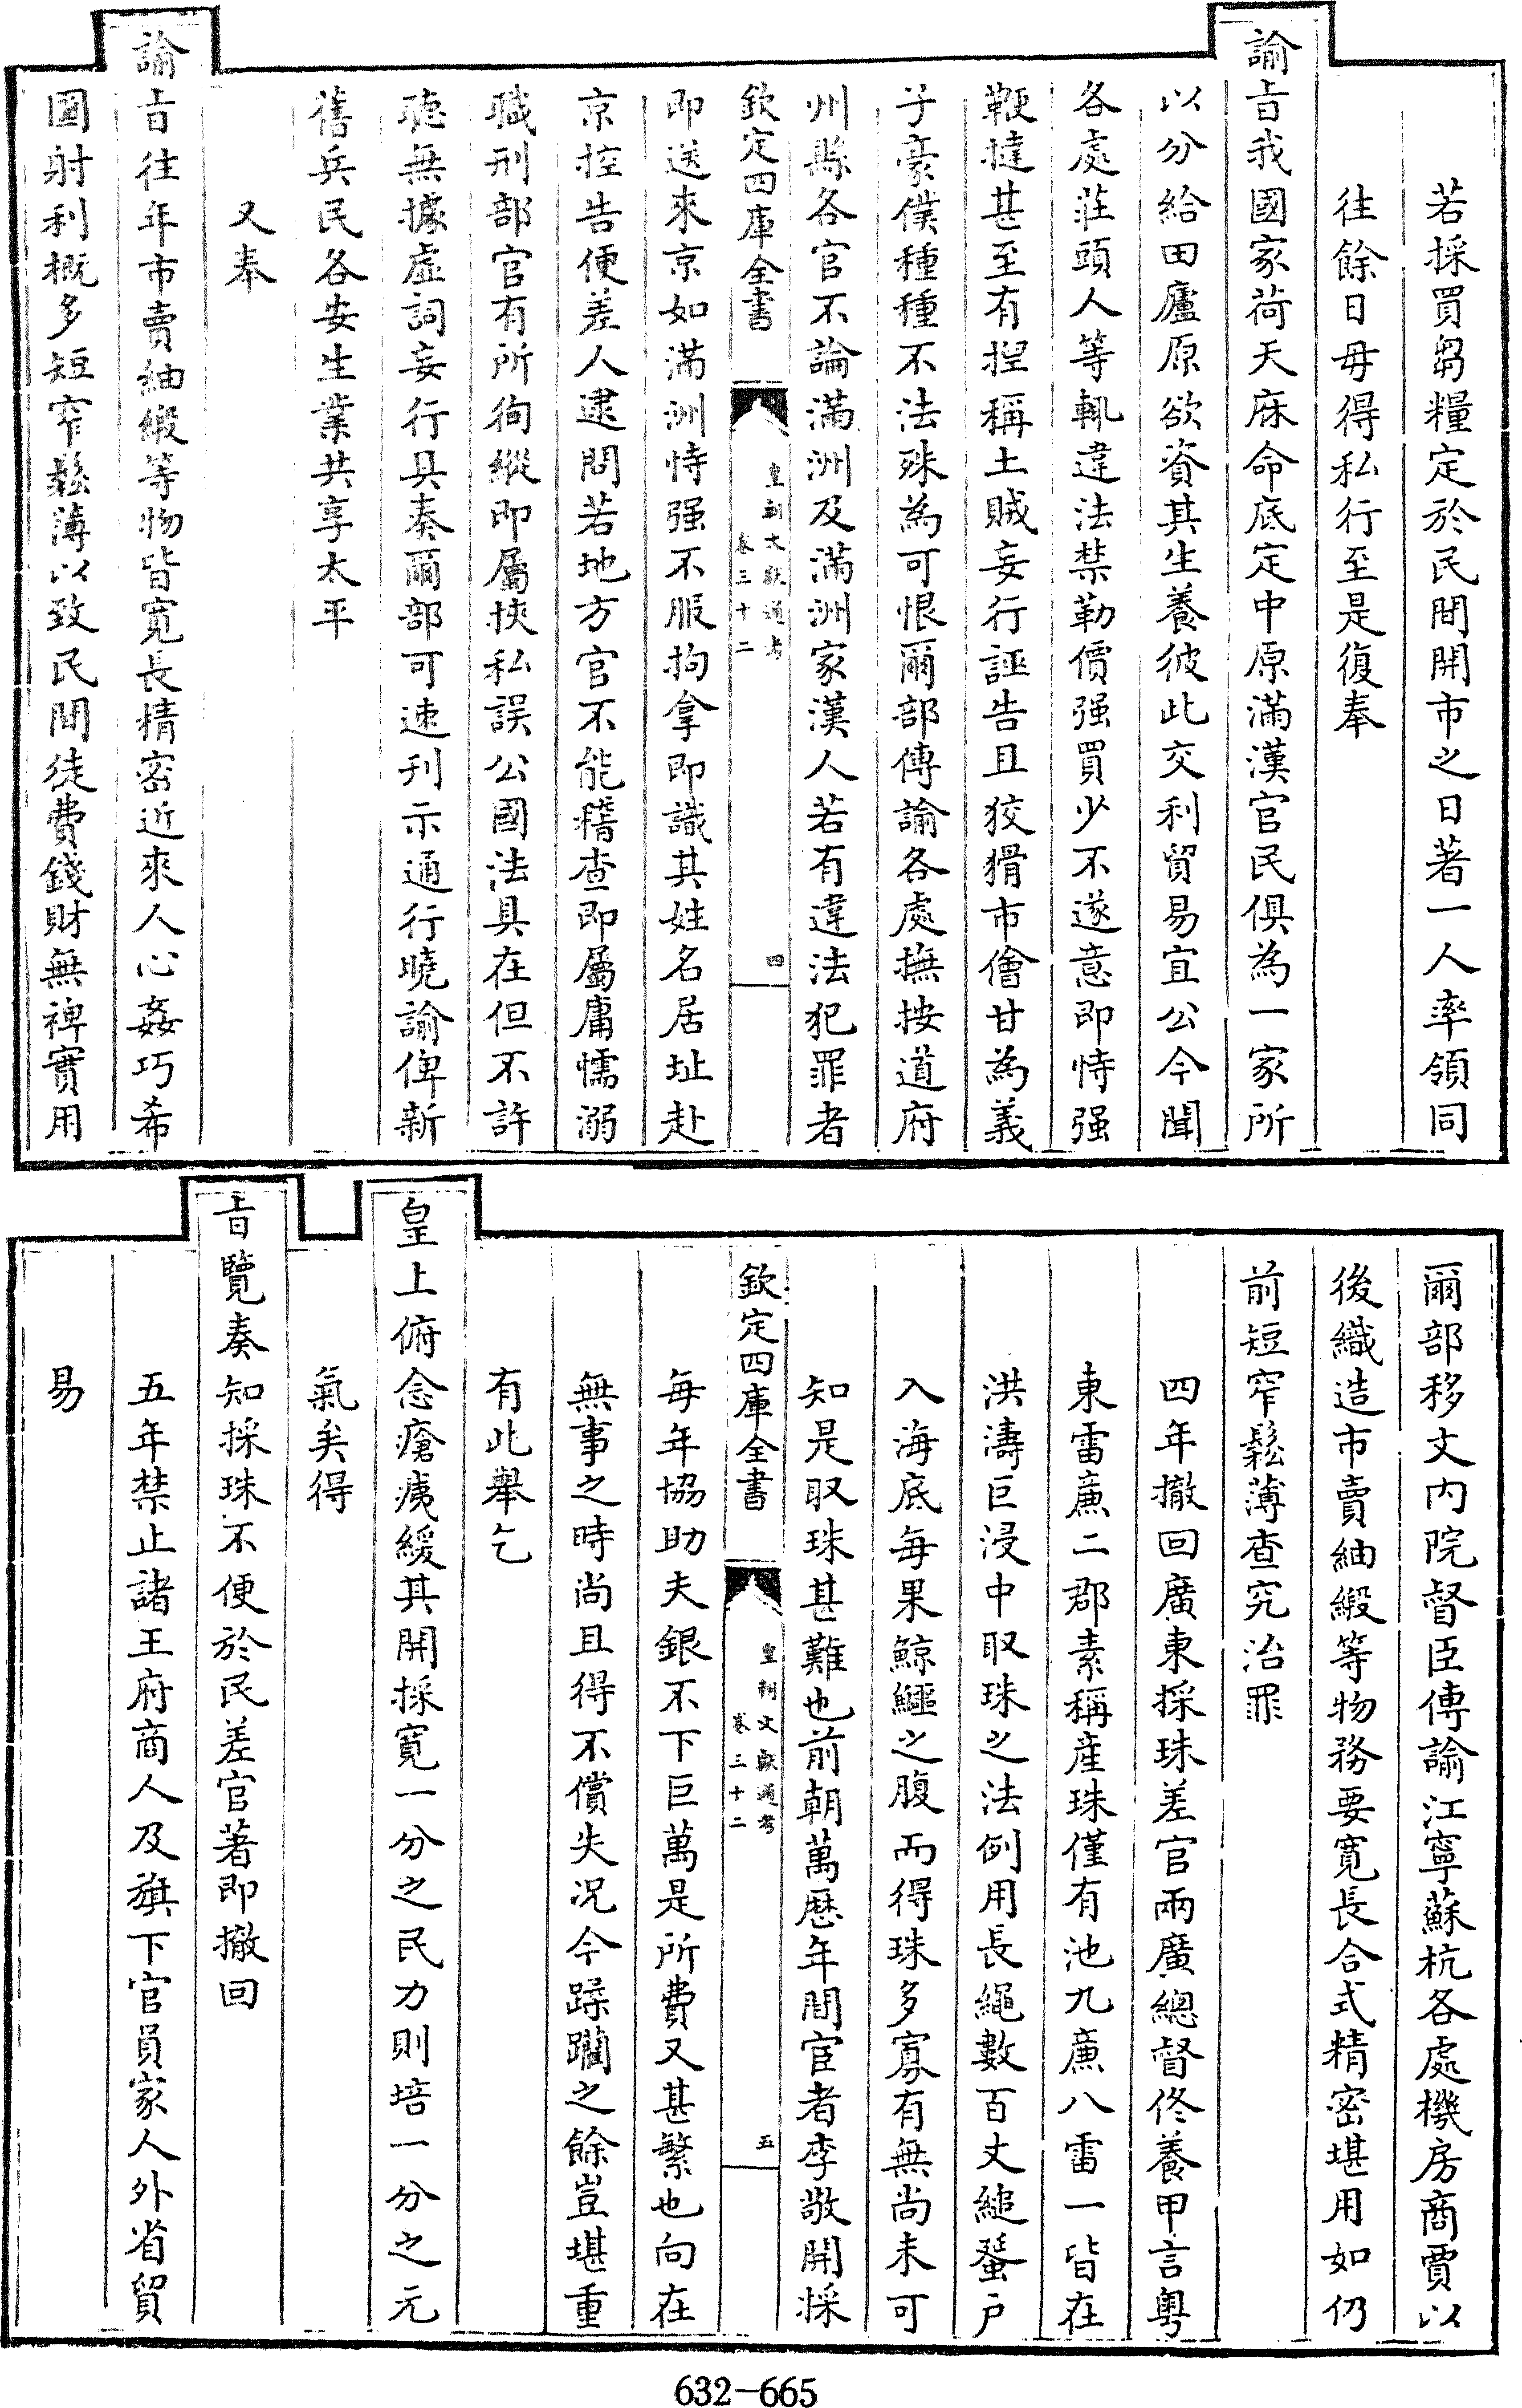 若採買芻糧定於民間開市之日著一人率領同
往餘日毋得私行至是復奉
諭旨我國家荷天庥命底定中原滿漢官民俱為一家所
以分給田廬原欲資其生養彼此交利貿易宜公今聞
各處莊頭人等輒違法禁勒價强買少不遂意即恃强
鞭撻甚至有捏稱土賊妄行誣告且狡猾市儈甘為義
子豪僕種種不法殊為可恨爾部傳諭各處撫按道府
州縣各官不論滿洲及滿洲家漢人若有違法犯罪者
欽定四庫全書
皇朝文獻通考
卷三十二
四
即送來京如滿洲恃强不服拘拿即識其姓名居址赴
京控告便差人逮問若地方官不能稽查即屬庸懦溺
職刑部官有所徇縱即屬挾私誤公國法具在但不許
聴無據虛詞妄行具奏爾部可速刊示通行曉諭俾新
舊兵民各安生業共享太平
又奉
諭旨往年市賣紬緞等物皆寬長精密近來人心姦巧希
圖射利概多短窄鬆薄以致民間徒費錢財無裨實用
爾部移文内院督臣傳諭江寧蘇杭各處機房商賈以
後織造市賣紬緞等物務要寬長合式精密堪用如仍
前短窄鬆薄查究治罪
四年撤回廣東採珠差官兩廣總督佟養甲言粤
東雷亷二郡素稱産珠僅有池九亷八雷一皆在
洪濤巨浸中取珠之法例用長繩數百丈縋蜑戸
入海底每果鯨鱷之腹而得珠多寡有無尚未可
知是取珠甚難也前朝萬歴年間宦者李敬開採
欽定四庫全書
皇朝文獻通考
卷三十二
五
每年協助夫銀不下巨萬是所費又甚繁也向在
無事之時尚且得不償失况今蹂躪之餘豈堪重
有此舉乞
皇上俯念瘡痍緩其開採寬一分之民力則培一分之元
氣矣得
旨覽奏知採珠不便於民差官著即撤回
五年禁止諸王府商人及旗下官員家人外省貿
易
632-665